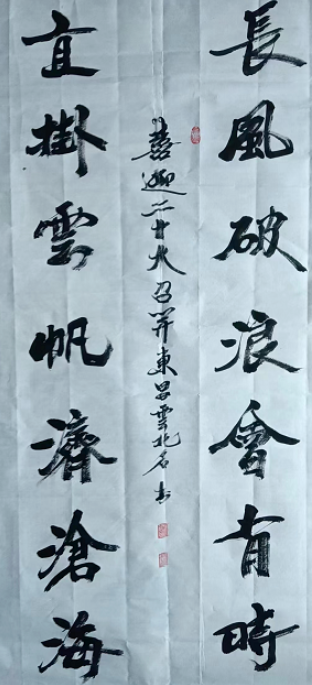 長風破浪會有時
直掛雲帆濟滄海
喜迎二十大召开東昌雲北名书